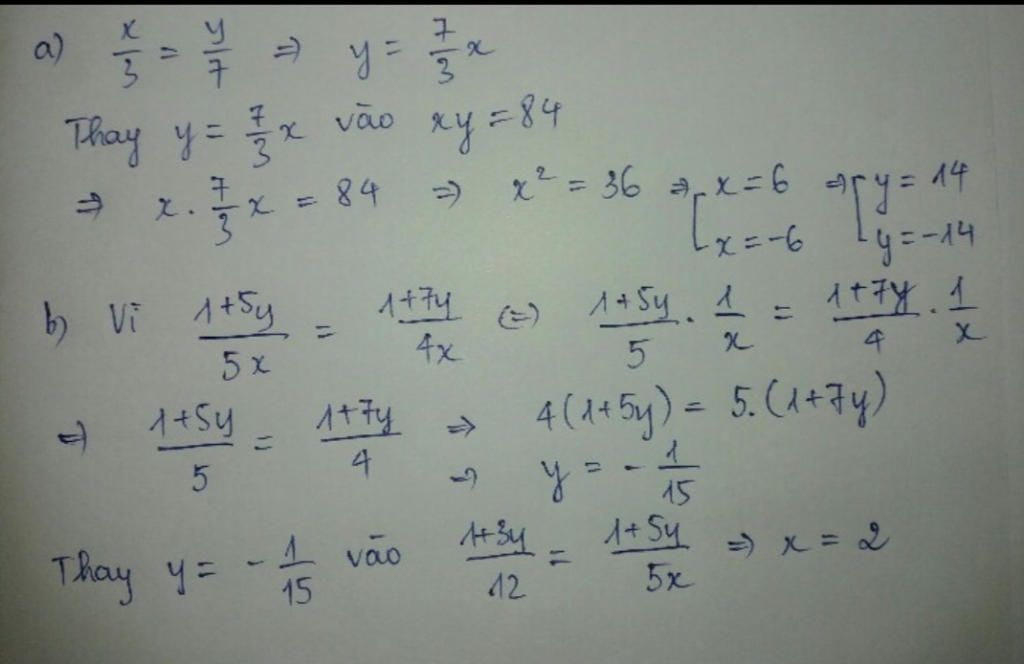 a) x/3 = y/7 ⇒ y = 7/3 x
Thay y = 7/3 x vào xy = 84
⇒ x . 7/3 x = 84 ⇒ x² = 36 ⇒ [ x = 6 ⇒ [ y = 14
x = -6 y = -14
b) Vì (1+5y)/(5x) = (1+7y)/(4x) (=) (1+5y)/5 . 1/x = (1+7y)/4 . 1/x
⇒ (1+5y)/5 = (1+7y)/4 ⇒ 4(1+5y) = 5.(1+7y)
⇒ y = - 1/15
Thay y = - 1/15 vào (1+3y)/12 = (1+5y)/(5x) ⇒ x = 2